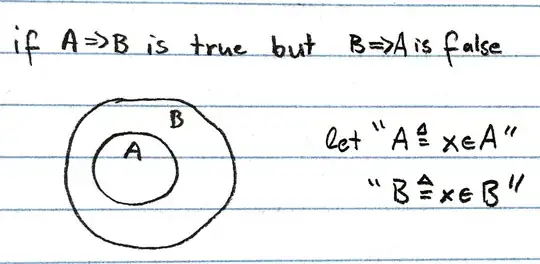 if A=>B is true but B=>A is false
B
A
let "A ≜ x∈A"
"B ≜ x∈B"